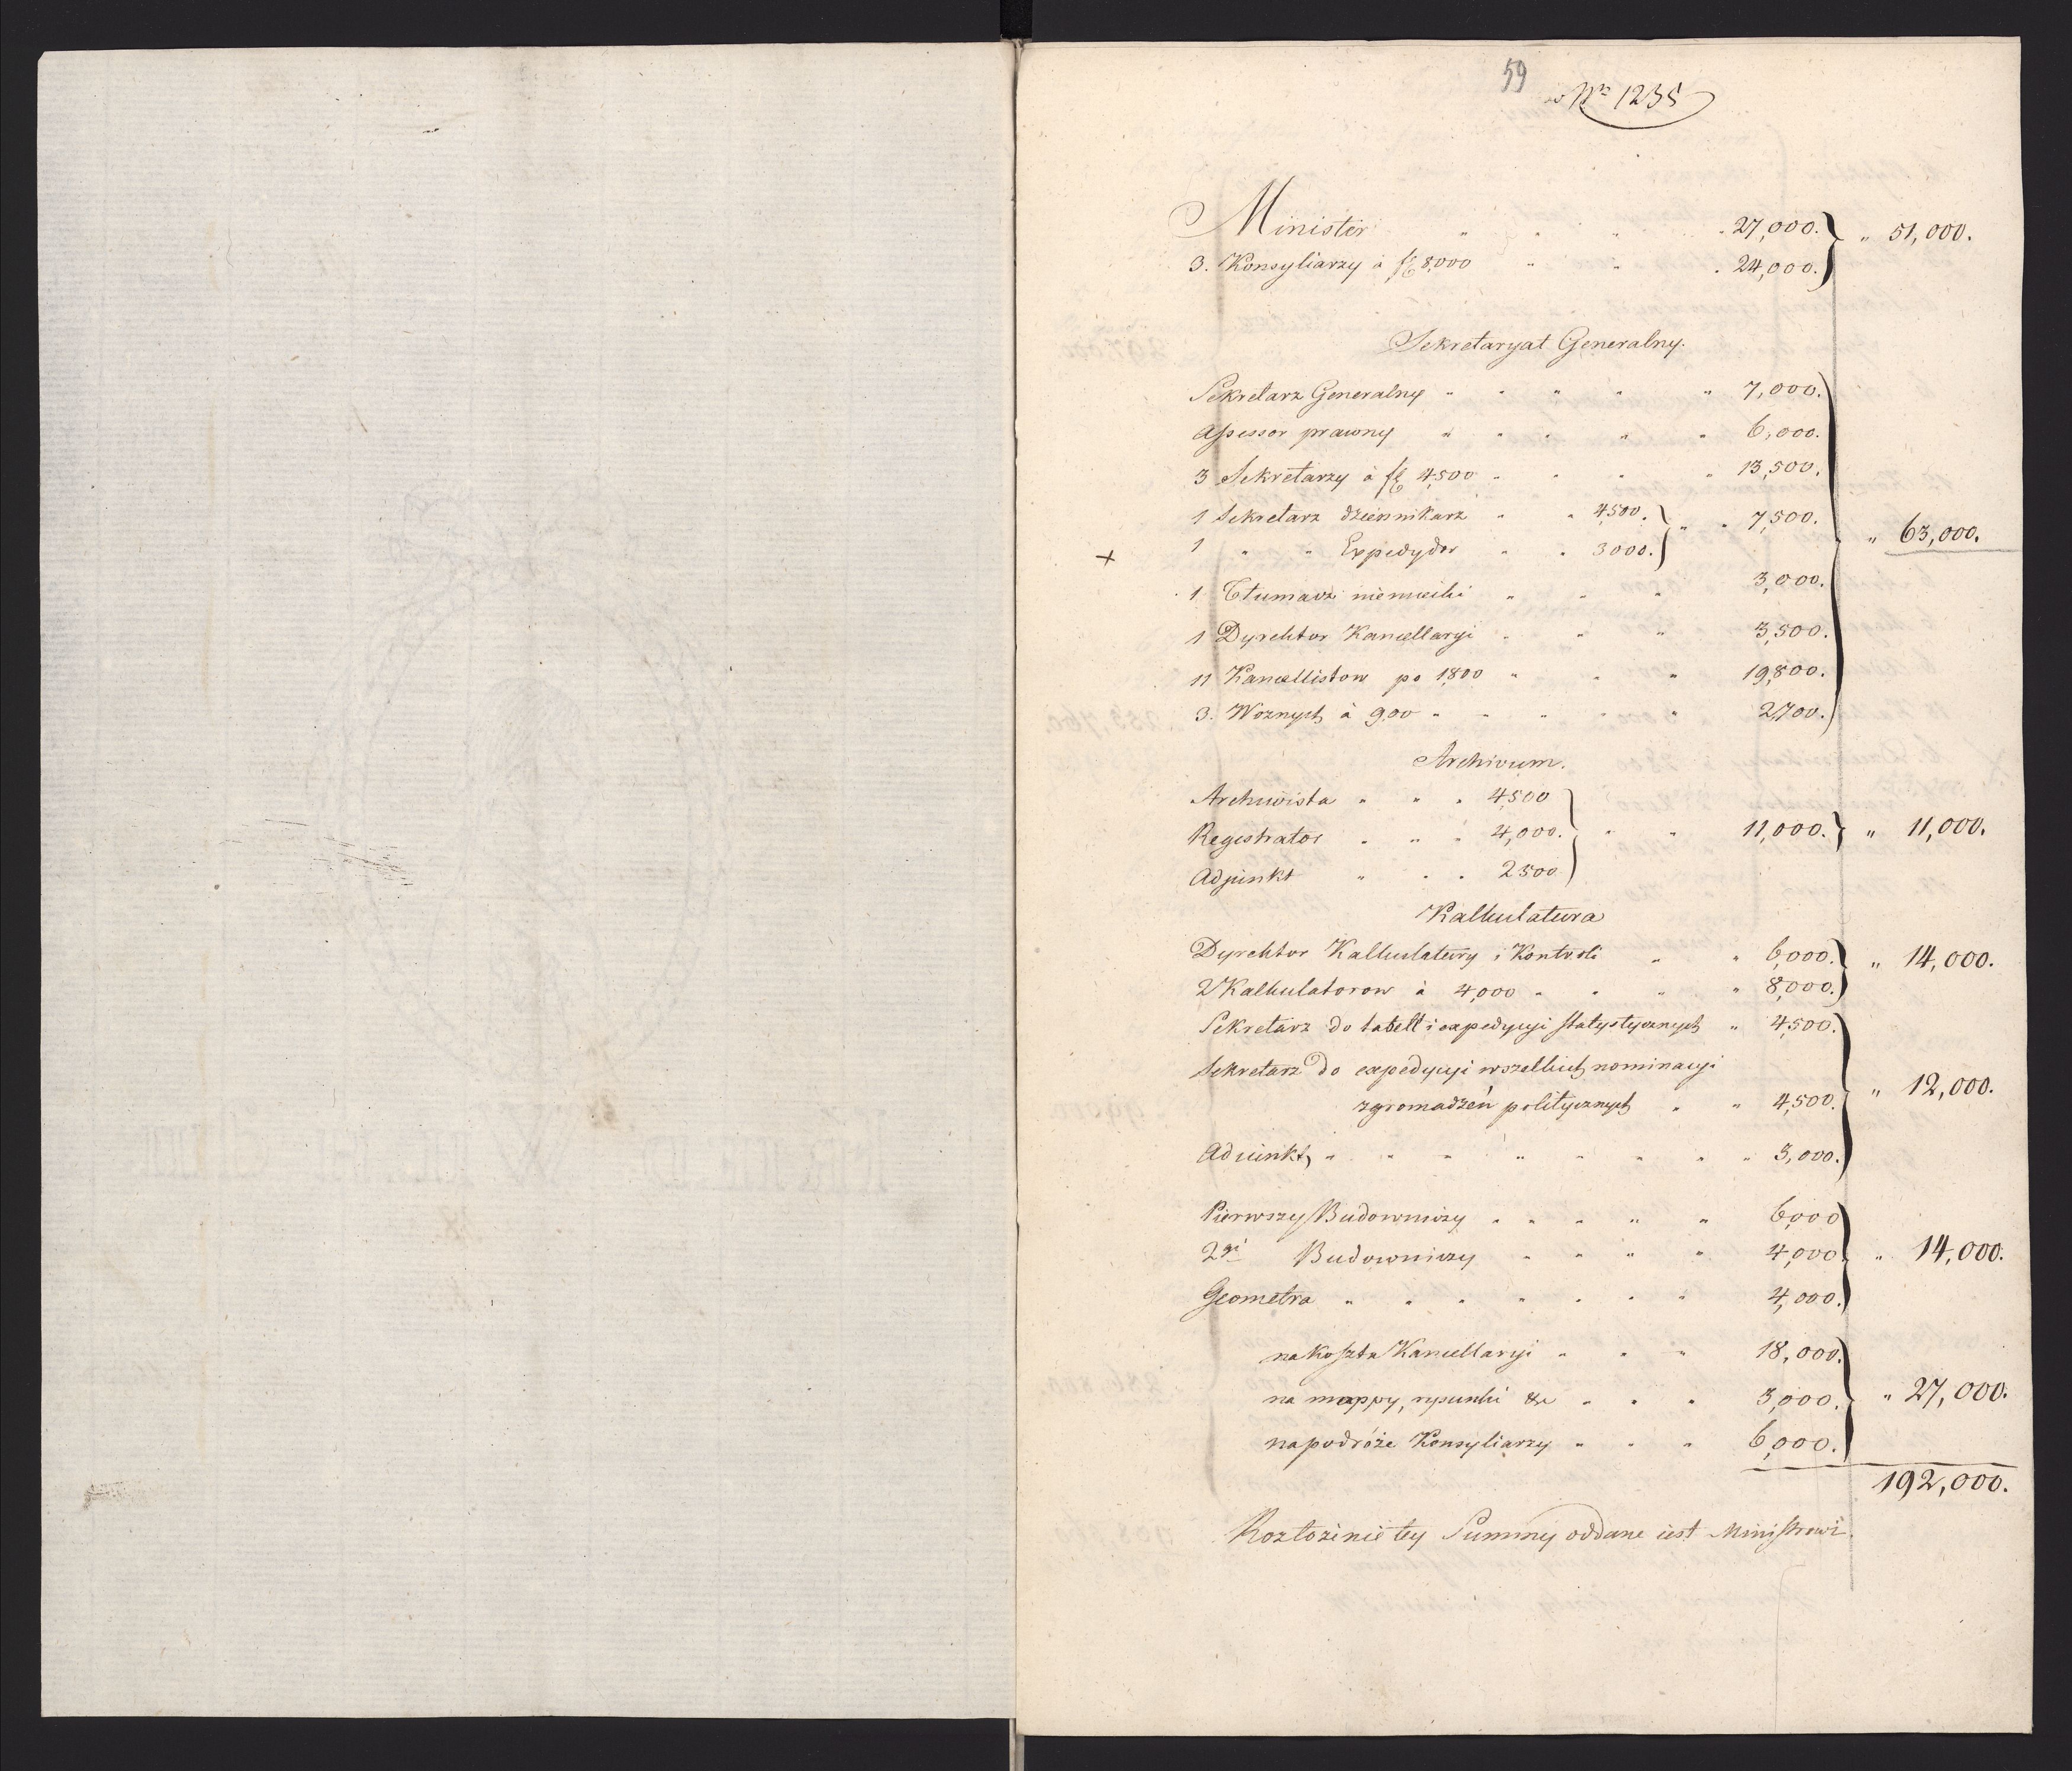 59
Nro 1235
Minister " " " " 27,000. } " 51,000.
3. Konsyliarzy à fl 8,000 " " " 24,000.
Sekretaryat Generalny.
Sekretarz Generalny " " " " " 7,000.
Assessor prawny " " " " " 6,000.
3 Sekretarzy à fl 4,500 " " " " 13,500.
1 Sekretarz dziennikarz " " 4,500. } " " 7,500.
+ 1 " " Expedydor " " 3000.
} " 63,000.
1 Tłumacz niemiecki " " " 3,000.
1 Dyrektor Kancellaryi " " " 3,500.
11 Kancellistow po 1,800 " " " 19,800.
3. Woznych à 900 " " " " " 2,700.
Archivum.
Archiwista " " " 4,500
Registrator " " " 4,000. } " " 11,000. } " 11,000.
Adjunkt " " " 2500
Kalkulatura
Dyrektor Kalkulatury i Kontroli " " 6,000. } " 14,000.
2 Kalkulatorow à 4,000 " " " " 8,000.
Sekretarz do tabell i expedycyi statystycznych " 4,500.
Sekretarz do expedycyi wszelkich nominacyi
zgromadzeń politycznych " " 4,500. } " 12,000.
Adiunkt, " " " " " " " " 3,000.
Pierwszy Budowniczy " " " " " 6,000
2gi Budowniczy " " " " 4,000 } " 14,000.
Geometra " " " " " " " 4,000.
na koszta Kancellaryi " " " 18,000.
na mappy, rysunki &c " " " 3,000. } " 27,000.
na podróże Konsyliarzy " " " 6,000.
192,000.
Rozłożenie tey Summy oddane iest Ministrowi.